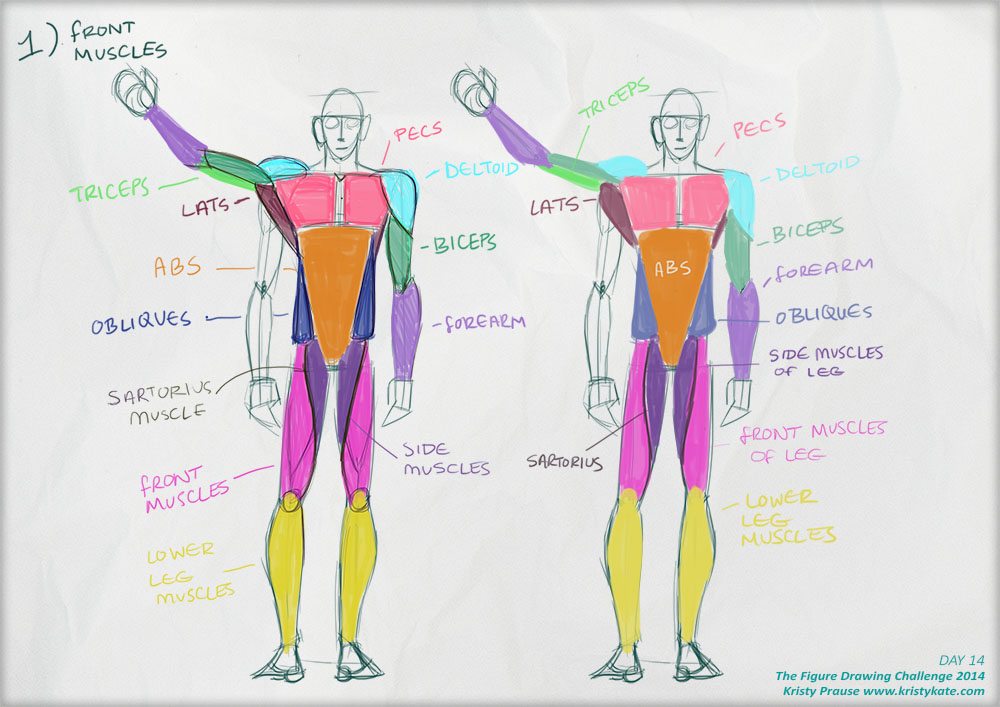 1) FRONT
MUSCLES
PECS
DELTOID
TRICEPS
LATS
BICEPS
ABS
OBLIQUES
FOREARM
SARTORIUS
MUSCLE
SIDE
MUSCLES
FRONT
MUSCLES
LOWER
LEG
MUSCLES
TRICEPS
PECS
DELTOID
LATS
BICEPS
ABS
FOREARM
OBLIQUES
SIDE MUSCLES
OF LEG
FRONT MUSCLES
OF LEG
SARTORIUS
LOWER
LEG
MUSCLES
DAY 14
The Figure Drawing Challenge 2014
Kristy Prause www.kristykate.com